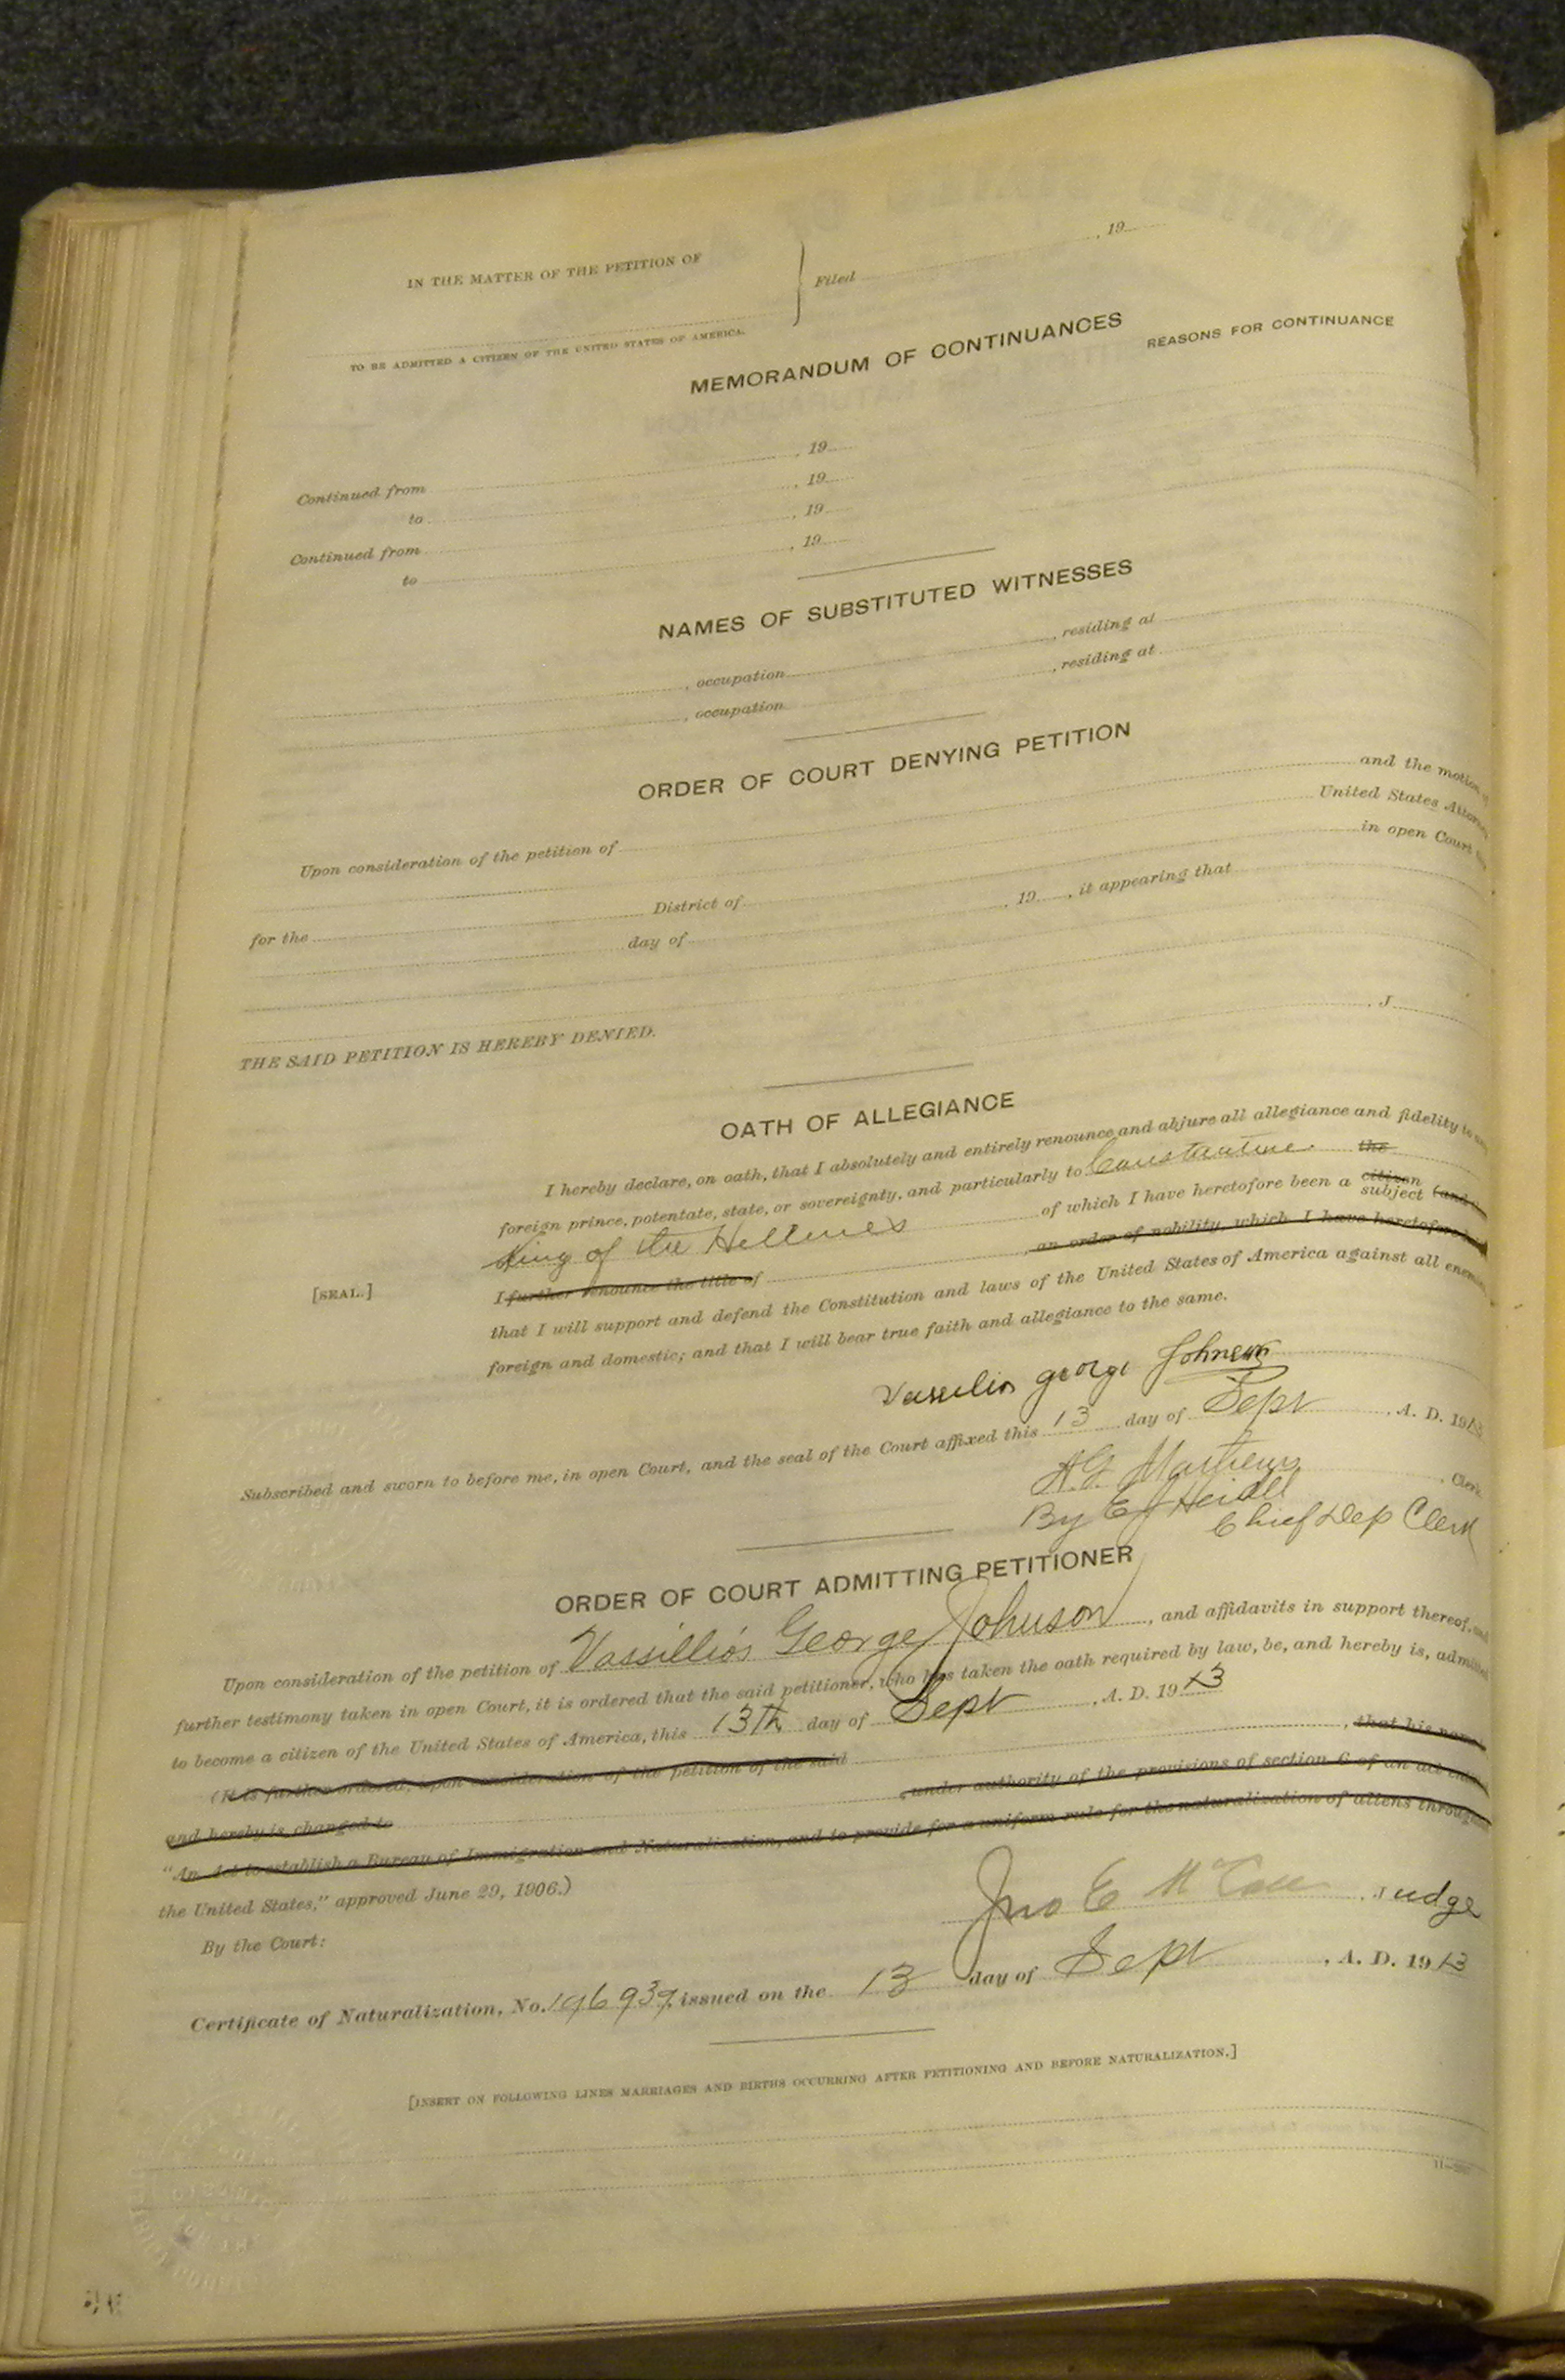 IN THE MATTER OF THE PETITION OF
Filed , 19
TO BE ADMITTED A CITIZEN OF THE UNITED STATES OF AMERICA.
MEMORANDUM OF CONTINUANCES
REASONS FOR CONTINUANCE
Continued from , 19
to , 19
Continued from , 19
to , 19
NAMES OF SUBSTITUTED WITNESSES
, occupation , residing at
, occupation , residing at
ORDER OF COURT DENYING PETITION
Upon consideration of the petition of and the motion of
United States Attorney
for the District of in open Court this
day of , 19 , it appearing that
THE SAID PETITION IS HEREBY DENIED.
, J
OATH OF ALLEGIANCE
I hereby declare, on oath, that I absolutely and entirely renounce and abjure all allegiance and fidelity to any
foreign prince, potentate, state, or sovereignty, and particularly to Constantine the
King of the Hellenes of which I have heretofore been a citizen subject (and
[SEAL.] I further renounce the title of , an order of nobility, which I have heretofore
that I will support and defend the Constitution and laws of the United States of America against all enemies
foreign and domestic; and that I will bear true faith and allegiance to the same.
Vassilios george Johnson
Subscribed and sworn to before me, in open Court, and the seal of the Court affixed this 13 day of Sept , A. D. 1913
A.G. Mathews , Clerk
By E J Heidll
Chief Dep Clerk
ORDER OF COURT ADMITTING PETITIONER
Upon consideration of the petition of Vassillios George Johnson , and affidavits in support thereof, and
further testimony taken in open Court, it is ordered that the said petitioner, who has taken the oath required by law, be, and hereby is, admitted
to become a citizen of the United States of America, this 13th day of Sept , A. D. 1913
(It is further ordered, upon consideration of the petition of the said , that his name
and hereby is, changed to , under authority of the provisions of section 6 of an act
"An Act to establish a Bureau of Immigration and Naturalization, and to provide for a uniform rule for the naturalization of aliens throughout
the United States," approved June 29, 1906.)
By the Court:
Jno E McCall , Judge
Certificate of Naturalization, No. 196939, issued on the 13 day of Sept , A. D. 1913
[INSERT ON FOLLOWING LINES MARRIAGES AND BIRTHS OCCURRING AFTER PETITIONING AND BEFORE NATURALIZATION.]